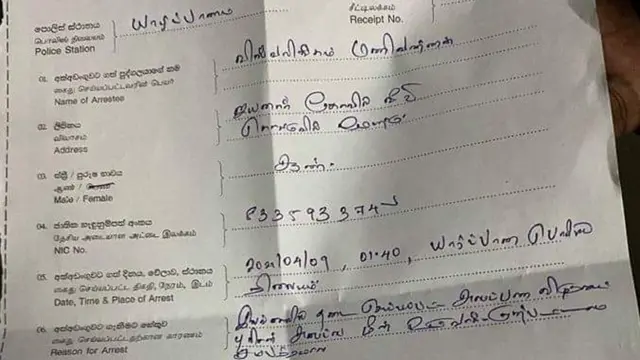 පොලිස් ස්ථානය
பொலிஸ் நிலையம்
Police Station
யாழ்ப்பாணம்
சீட்டிலக்கம்
Receipt No.
01. අත්අඩංගුවට ගත් පුද්ගලයාගේ නම
கைது செய்யப்பட்டவரின் பெயர்
Name of Arrestee
விஸ்வலிங்கம் மணிவண்ணன்
02. ලිපිනය
விலாசம்
Address
கோவில் வீதி
03. ස්ත්‍රී / පුරුෂ භාවය
ஆண் /
Male / Female
ஆண்.
04. ජාතික හැඳුනුම්පත් අංකය
தேசிய அடையாள அட்டை இலக்கம்
NIC No.
833593374V
05. අත්අඩංගුවට ගත් දිනය, වේලාව, ස්ථානය
கைது செய்யப்பட்ட திகதி, நேரம், இடம்
Date, Time & Place of Arrest
2021/04/09, 01.40, யாழ்ப்பாண பொலிஸ்
நிலையம்
06. අත්අඩංගුවට ගැනීමට හේතුව
கைது செய்யப்பட்டதற்கான காரணம்
Reason for Arrest
இலங்கையில் தடை செய்யப்பட்ட அமைப்பான